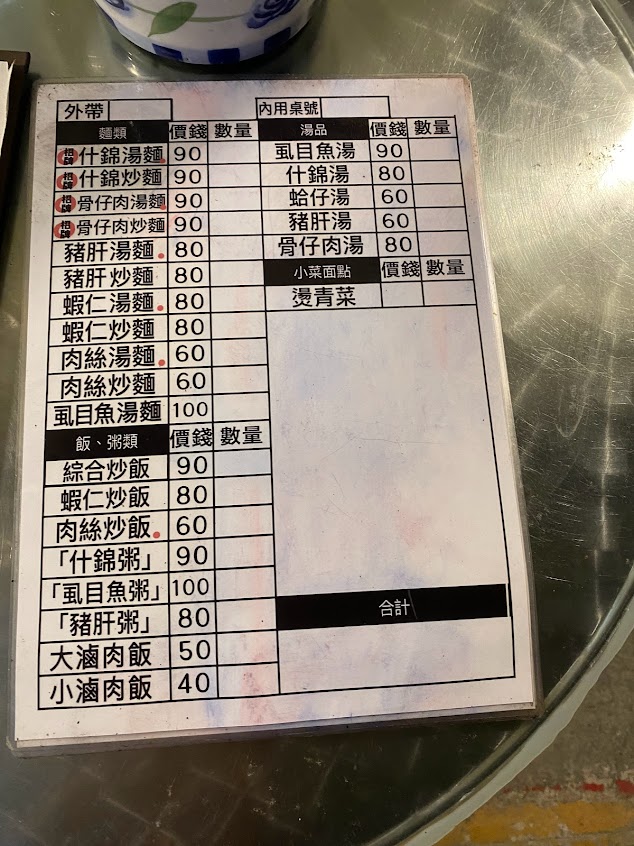 外帶
內用桌號
麵類 價錢 數量
招牌 什錦湯麵 90
招牌 什錦炒麵 90
招牌 骨仔肉湯麵 90
招牌 骨仔肉炒麵 90
豬肝湯麵 80
豬肝炒麵 80
蝦仁湯麵 80
蝦仁炒麵 80
肉絲湯麵 60
肉絲炒麵 60
虱目魚湯麵 100
飯、粥類 價錢 數量
綜合炒飯 90
蝦仁炒飯 80
肉絲炒飯 60
「什錦粥」 90
「虱目魚粥」 100
「豬肝粥」 80
大滷肉飯 50
小滷肉飯 40
湯品 價錢 數量
虱目魚湯 90
什錦湯 80
蛤仔湯 60
豬肝湯 60
骨仔肉湯 80
小菜面點 價錢 數量
燙青菜
合計